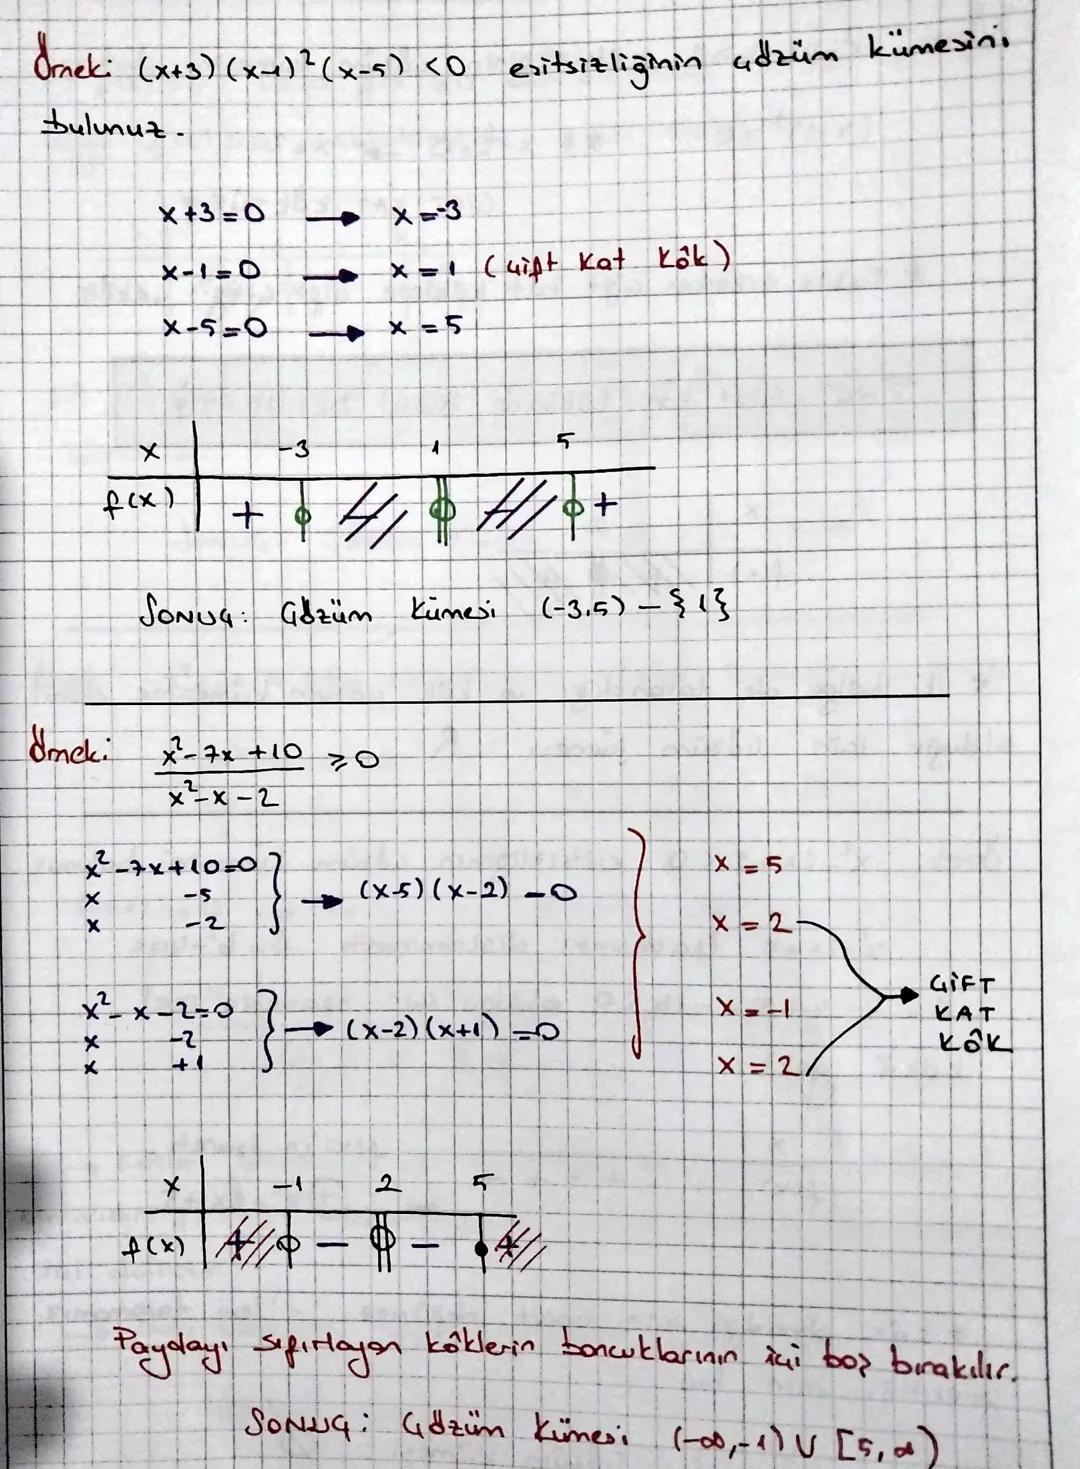 Örnek: (x+3)(x-1)²(x-5) <0 eşitsizliğinin çözüm kümesini
bulunuz.
x+3=0 → x=-3
x-1=0 → x=1 (çift kat kök)
x-5=0 → x=5
x -3 1 5
f(x) + +
SONUÇ: Çözüm kümesi (-3,5) - {1}
Örnek: x²-7x+10 ≥0
x²-x-2
x²-7x+10=0
x -5 → (x-5)(x-2)=0
x -2
x²-x-2=0
x -2 → (x-2)(x+1)=0
x +1
x=5
x=2
x=-1
x=2
ÇİFT
KAT
KÖK
x -1 2 5
f(x) + - - +
Paydayı sıfırlayan köklerin boncuklarının içi boş bırakılır.
SONUÇ: Çözüm kümesi (-∞,-1) ∪ [5,∞)